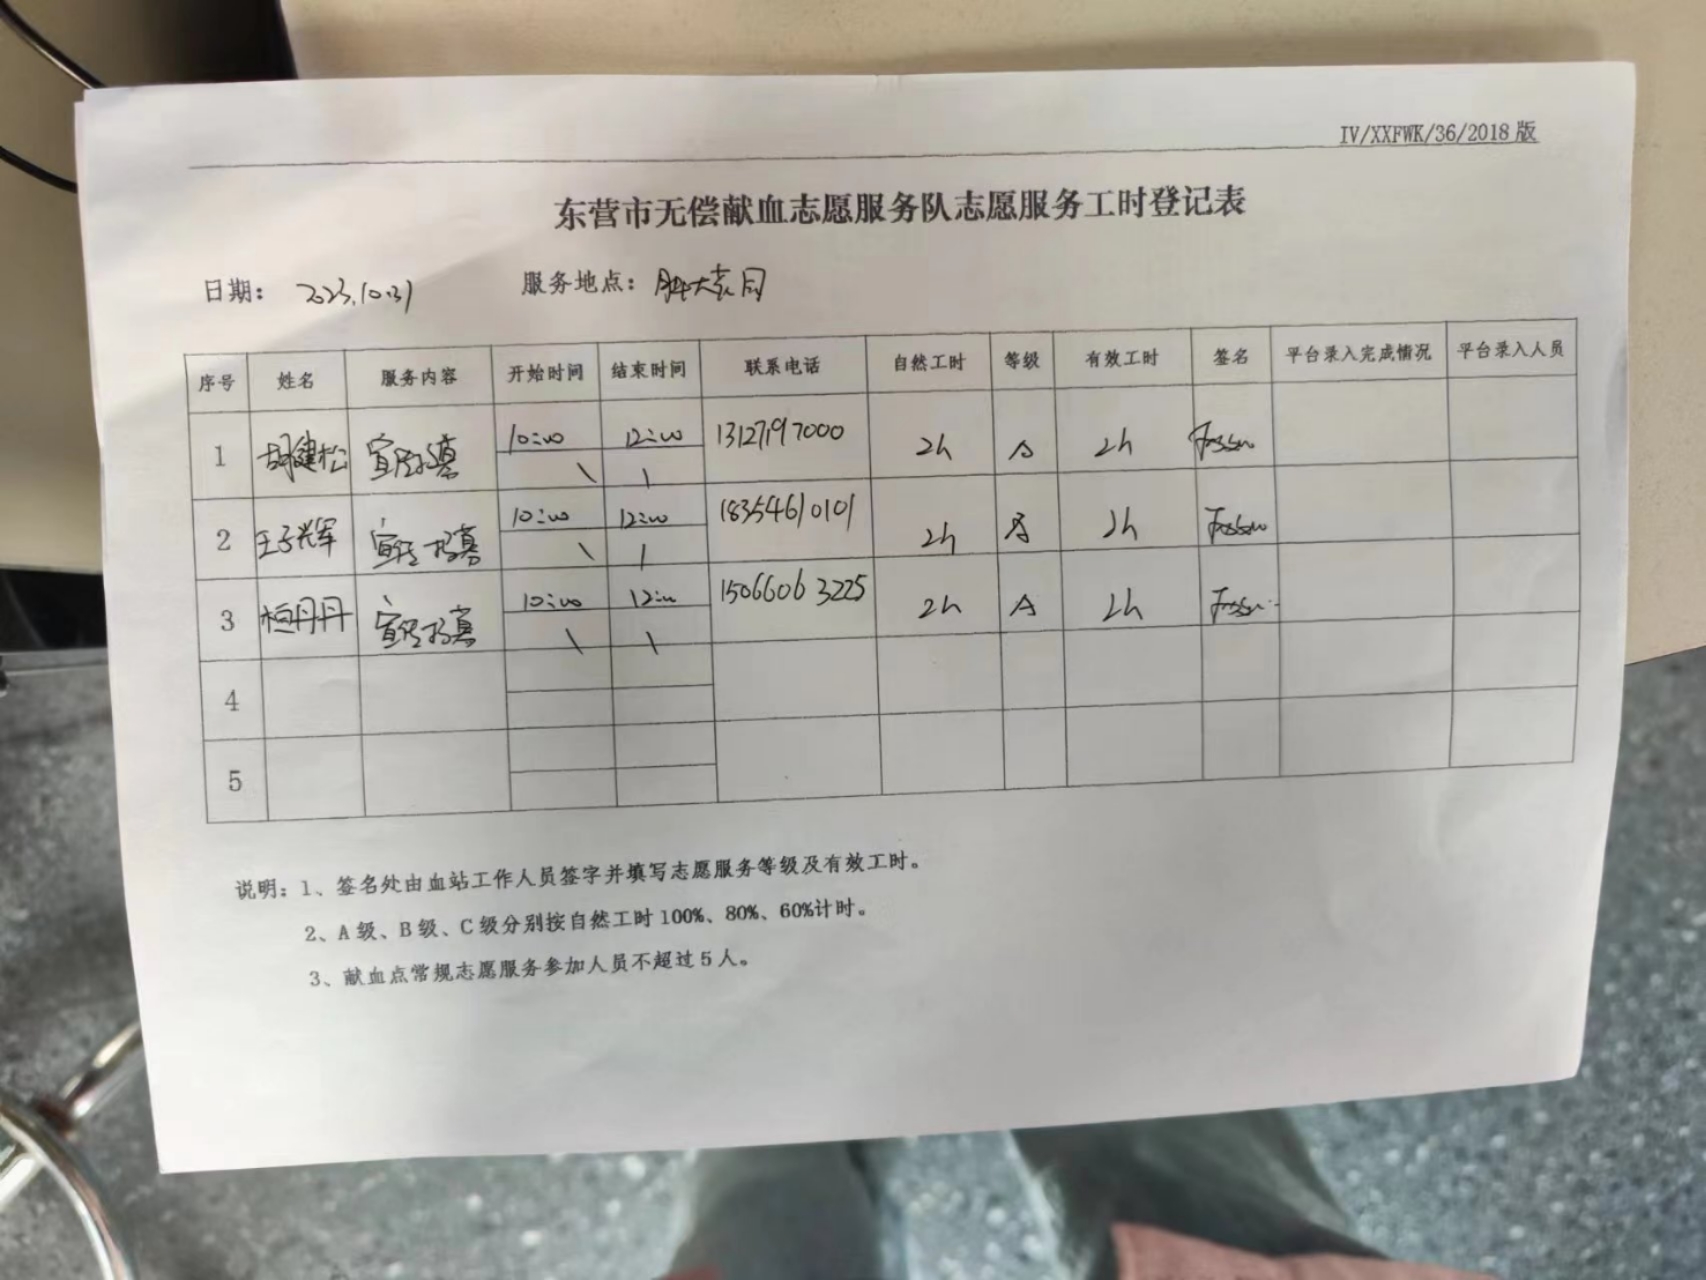 IV/XXFWK/36/2018版
东营市无偿献血志愿服务队志愿服务工时登记表
日期： 2023.10.31 服务地点： 胖大袁同
序号 姓名 服务内容 开始时间 结束时间 联系电话 自然工时 等级 有效工时 签名 平台录入完成情况 平台录入人员
1 胡建松 宣传招募 10:00 12:00 13127197000 2h A 2h
2 王子辉 宣传招募 10:00 12:00 18354610101 2h A 2h
3 桓丹丹 宣传招募 10:00 12:00 15066063225 2h A 2h
4
5
说明：1、签名处由血站工作人员签字并填写志愿服务等级及有效工时。
2、A级、B级、C级分别按自然工时100%、80%、60%计时。
3、献血点常规志愿服务参加人员不超过5人。